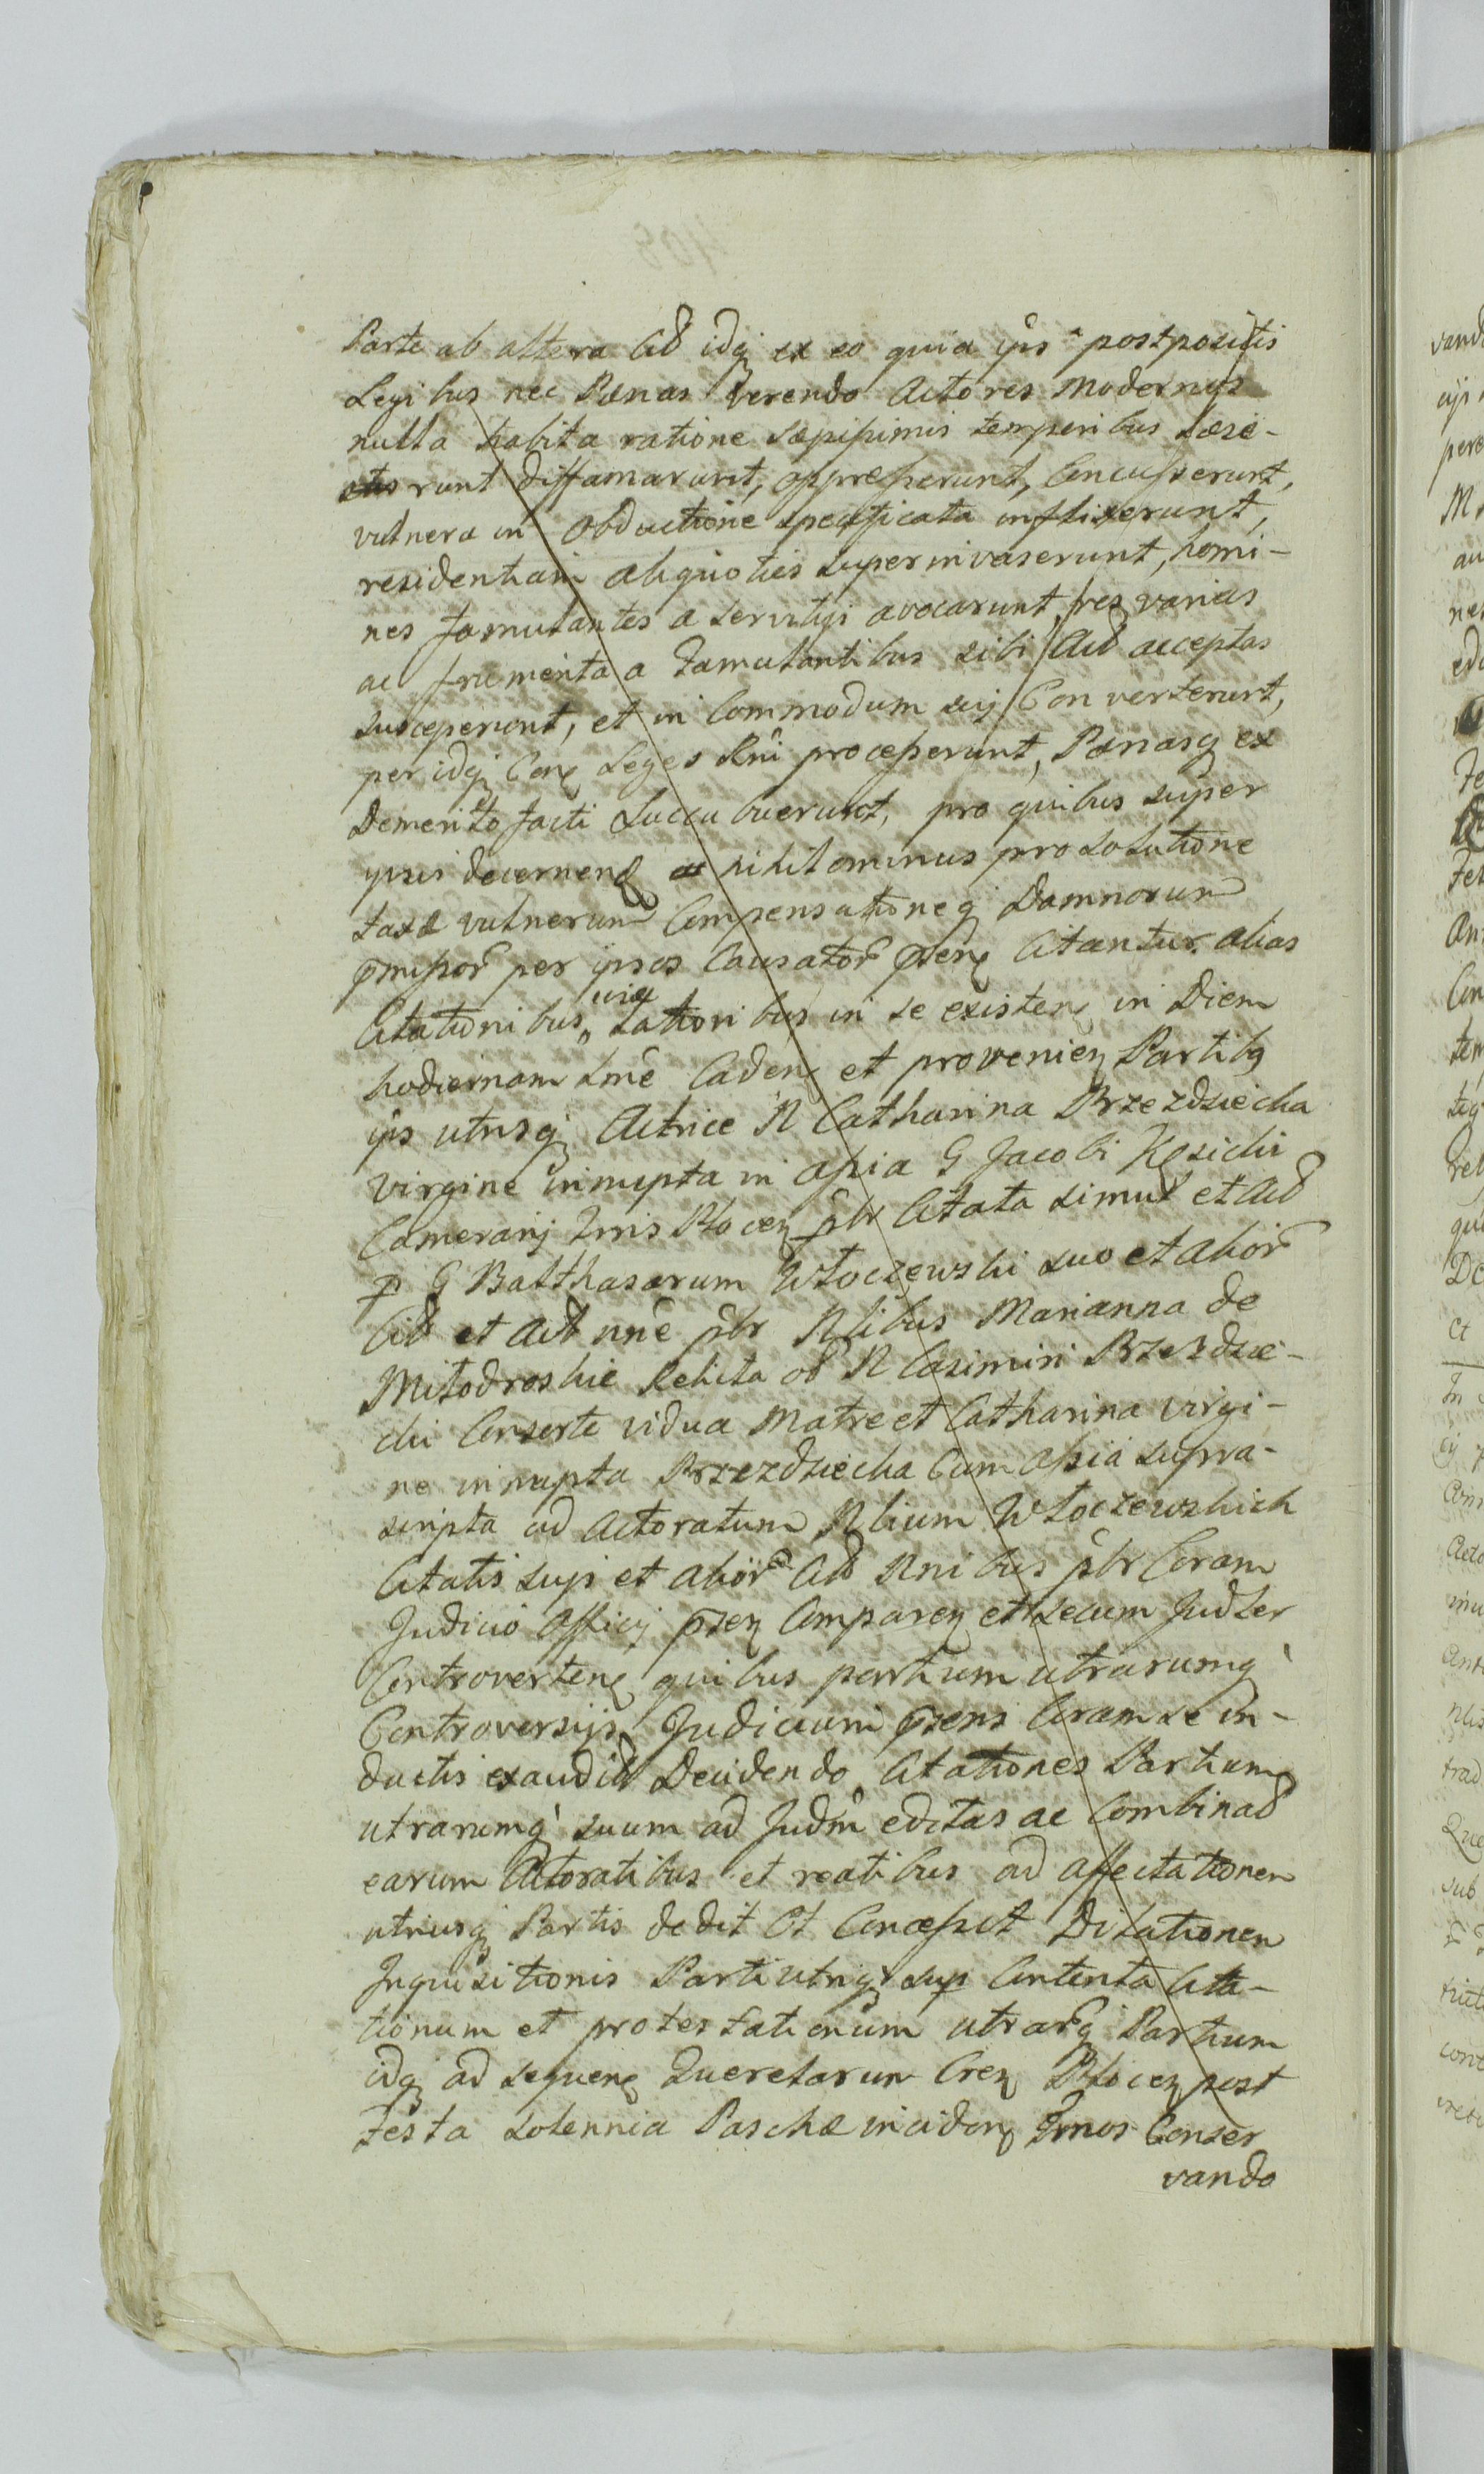 Parte ab altera Citt idq ex eo quia ijs postpositis
Legibus nec Pænas verendo Actores modernos
nulla habita ratione sæpissimis temporibus læse-
runt diffamarunt, oppresserunt, Concusserunt,
vulnera in Obductione specificata inflixerunt,
residentiam aliquoties superinvaserunt, homi-
nes famulantes a servitijs avocarunt, res varias
ac frumenta a Famulantibus sibi Act acceptas
susceperunt, et in Commodum suij Converterunt,
per idq Con Leges Rni processerunt, Pænasq ex
Demerito facti Succubuerunt, pro quibus super
ipsis decernend nihilominus pro solutione
taxæ vulnerum Compensationeq Damnorum
pmissor per ipsos Causator pten Citantur alias
Citationibus, uti Lationibus in se existen in Diem
hodiernam Lme Caden et provenien Partibq
ijs utrisq Actrice N Catharina Brzezdziecka
virgine innupta in assia G Jacobi Kęsicki
Camerarij Trris Plocen pbr Citata simul et Act
p G Balthasarum Włoczewski suo et alior
Citt et Act nne pbr Nlibus Marianna de
Miłodroskie Relicta ol N Casimiri Brzezdzie-
cki Consorte vidua Matre et Catharina virgi-
ne innupta Brzezdziecka Cum assia supra-
scripta ad Actoratum Nlium Włoczewskich
Citatis suis et alior Citt Nnibus pbr Coram
Judicio Officij psen Comparen et secum Judler
Controverten quibus partium utrarumq
Controversijs Judicium psens Coram se in-
ductis exaudit Decidendo Citationes Partium
utrarumq suum ad Judm editas ac Combinad
earum Actoratibus et reatibus ad affectationem
utriusq Partis dedit et Concessit Dilationem
Inquisitionis Parti utriq sup Contenta Cita-
tionum et protestationum utrarq Partium
idq ad sequen Querelarum Cren Plocen post
Festa solennia Paschæ inciden Tmos Conser
vando